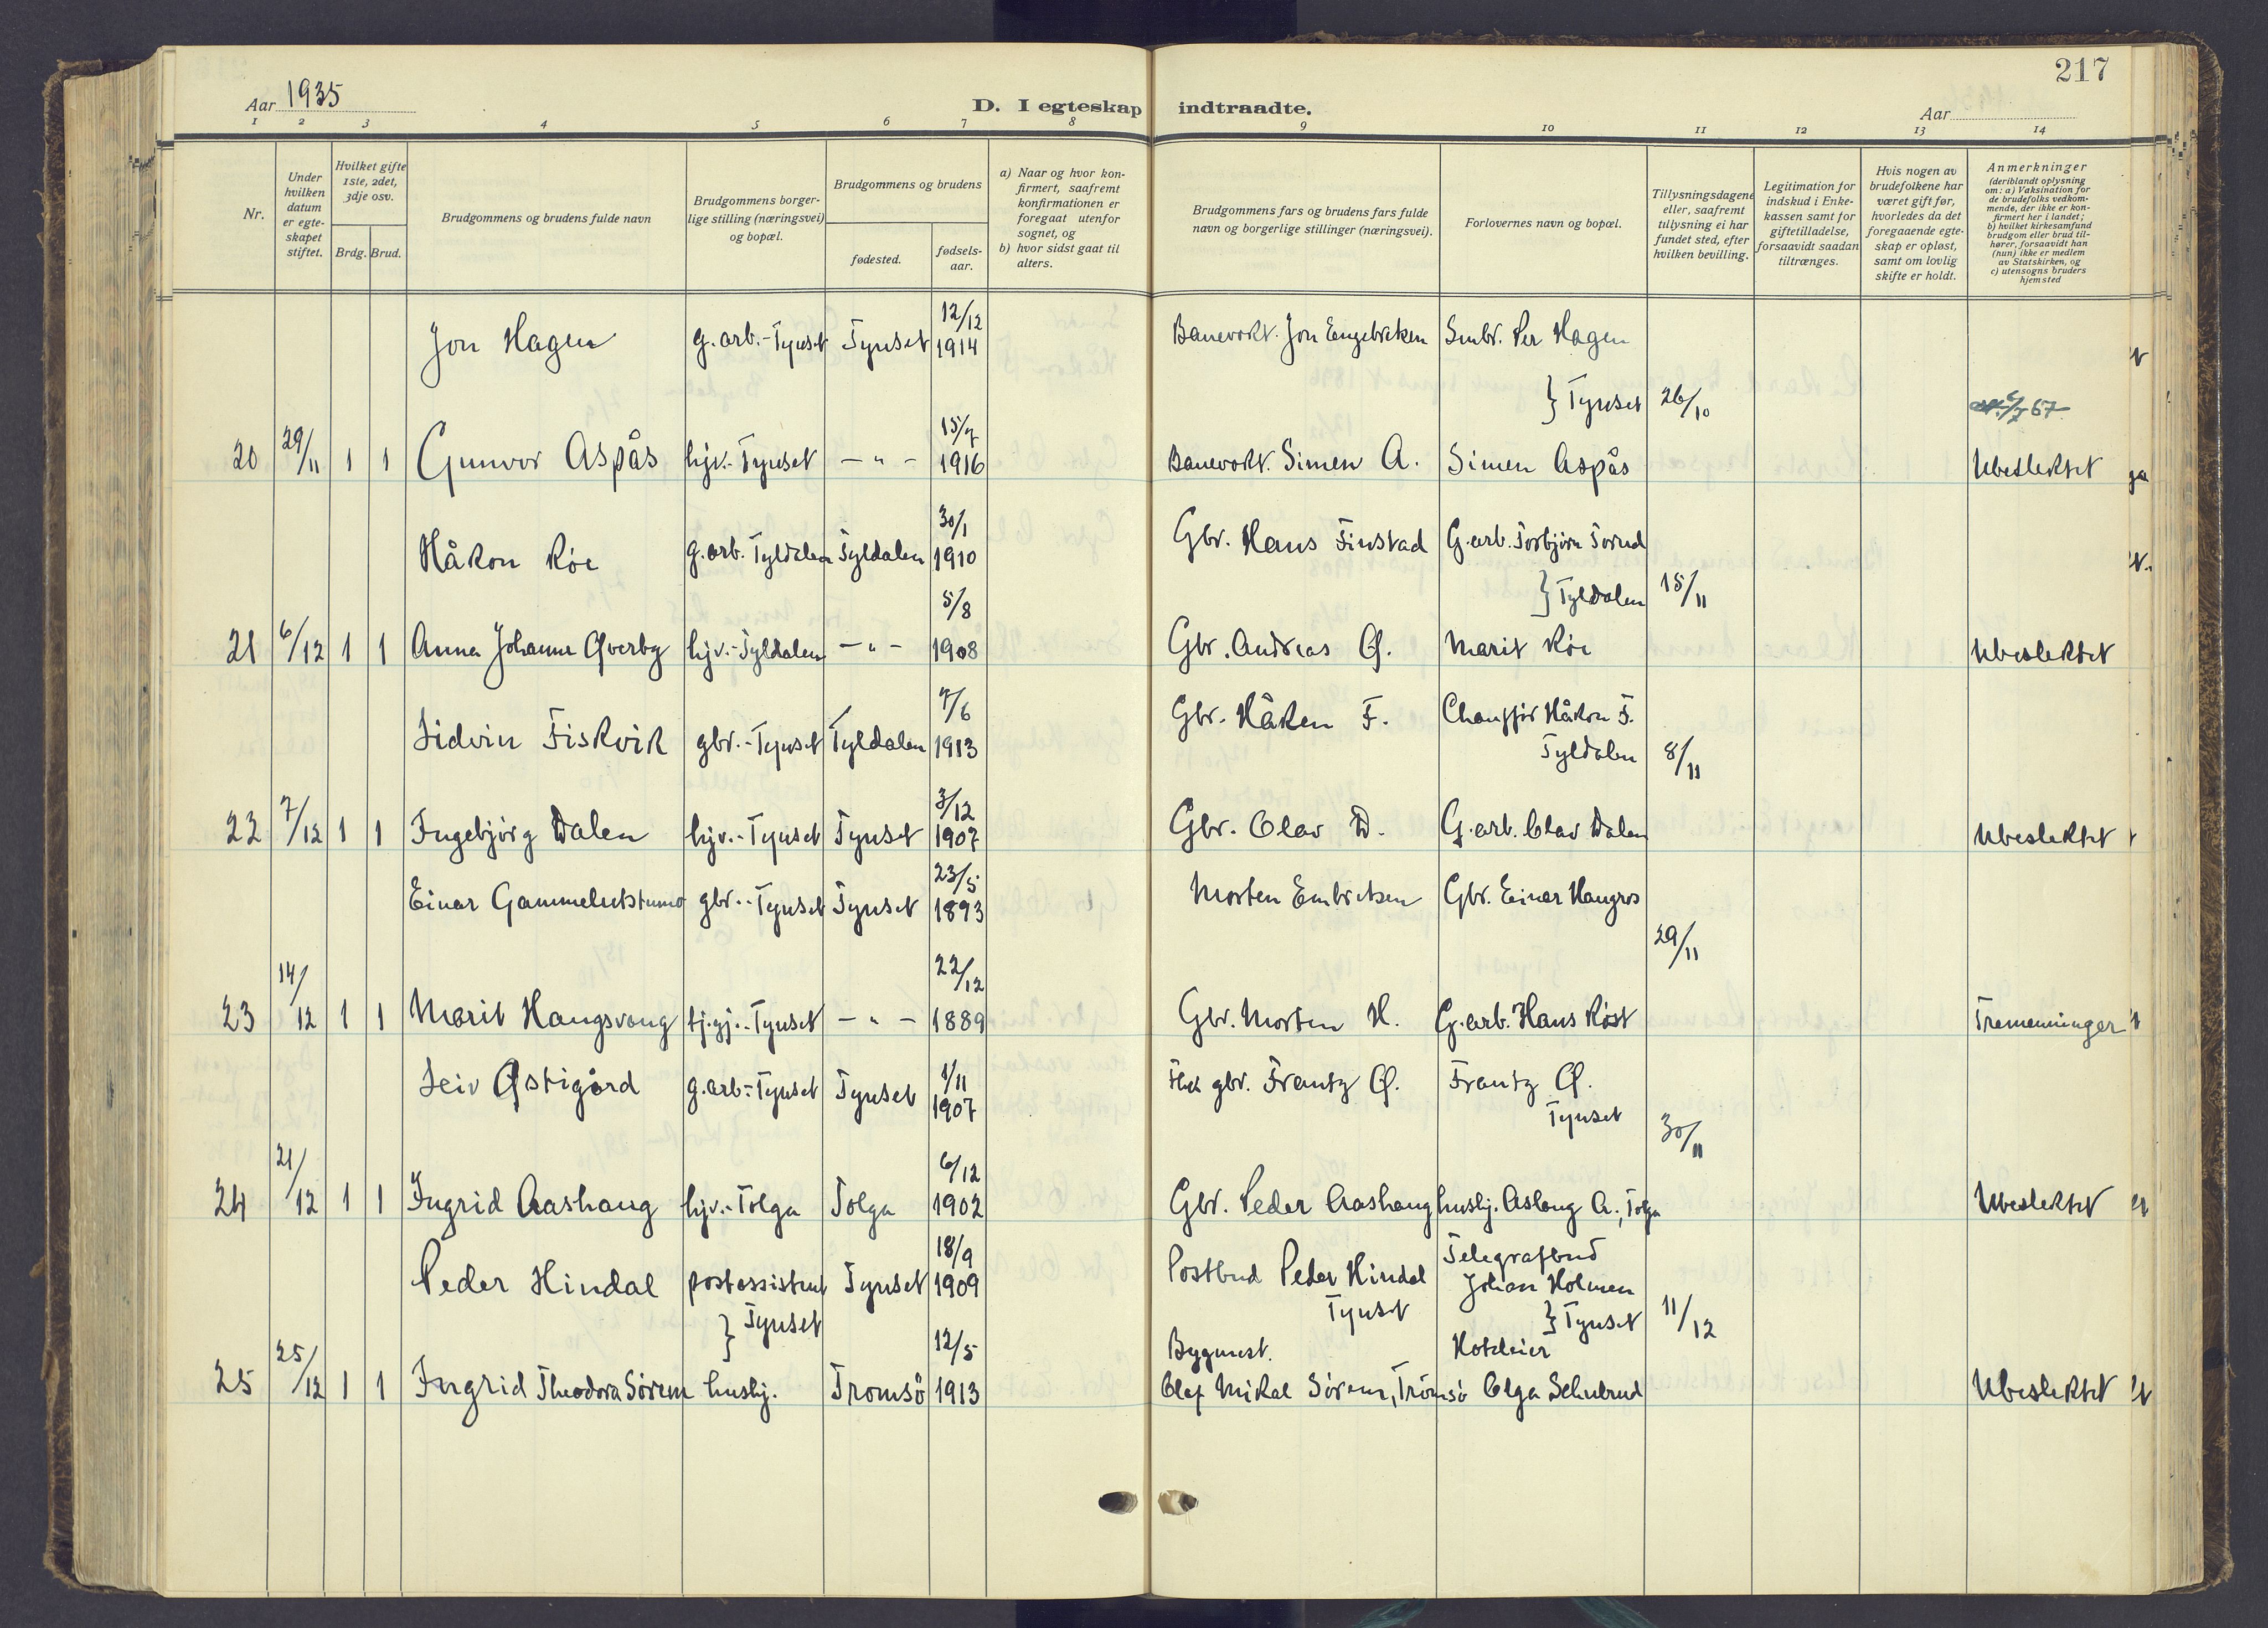 217
Aar 1935
D. I egteskap indtraadte.
Aar
1 2 3 4 5 6 7 8 9 10 11 12 13 14
Nr.
Under hvilken datum er egte-skapet stiftet.
Hvilket gifte 1ste, 2det, 3dje osv.
Brdg. Brud.
Brudgommens og brudens fulde navn
Brudgommens borger-lige stilling (næringsvei) og bopæl.
Brudgommens og brudens
fødested.
fødsels-aar.
a) Naar og hvor kon-firmert, saafremt konfirmationen er foregaat utenfor sognet, og
b) hvor sidst gaat til alters.
Brudgommens fars og brudens fars fulde navn og borgerlige stillinger (næringsvei).
Forlovernes navn og bopæl.
Tillysningsdagene eller, saafremt tillysning ei har fundet sted, efter hvilken bevilling.
Legitimation for indskud i Enke-kassen samt for giftetilladelse, forsaavidt saadan tiltrænges.
Hvis nogen av brudefolkene har været gift før, hvorledes da det foregaaende egte-skap er opløst, samt om lovlig skifte er holdt.
Anmerkninger (deriblandt oplysning om: a) Vaksination for de brudefolks vedkom-mende, der ikke er kon-firmert her i landet; b) hvilket kirkesamfund brudgom eller brud til-hører, forsaavidt han (hun) ikke er medlem av Statskirken, og c) utensogns bruders hjemsted
Jon Hagen g.arb.-Tynset Tynset 12/12 1914 Banevokt. Jon Engebretsen Smbr. Per Hagen
} Tynset 26/10
20 29/11 1 1 Gunvor Aspås hjv.-Tynset -"- 15/7 1916 Banevokt. Simen A. Simen Aspås Ubeslektet
Håkon Röe g.arb. Tyldalen Tyldalen 30/1 1910 Gbr. Hans Finstad G.arb. Torbjörn Torud
} Tyldalen 15/11
21 6/12 1 1 Anna Johanne Øverby hjv.-Tyldalen -"- 5/8 1908 Gbr. Andreas Ø. Marit Röe Ubeslektet
Sidvin Fiskvik gbr.-Tynset Tyldalen 7/6 1913 Gbr. Håken F. Chaufför Håkon F.
Tyldalen 8/11
22 7/12 1 1 Ingebjörg Dalen hjv.-Tynset Tynset 3/12 1907 Gbr. Olav D. G.arb. Olav Dalen Ubeslektet
Einar Gammelutstumo gbr.-Tynset Tynset 23/5 1893 Morten Embretsen Gbr. Einar Haugros
29/11
23 14/12 1 1 Marit Haugsvang tj.gj.-Tynset -"- 22/12 1889 Gbr. Morten H. G.arb. Hans Röst Tremenninger
Leiv Østigård g.arb-Tynset Tynset 1/11 1907 gbr. Frantz Ø. Frantz Ø.
Tynset 30/11
24 21/12 1 1 Ingrid Aashaug hjv.-Tolga Tolga 6/12 1902 Gbr. Peder Aashaug hushj. Aslaug A., Tolga Ubeslektet
Peder Hindal postassistent Tynset 18/9 1909 Postbud Peder Hindal Telegrafbud Johan Holmen
} Tynset Tynset } Tynset 11/12
Bygmest. Hoteleier
25 25/12 1 1 Ingrid Theodora Sörem hushj. Tromsö 12/5 1913 Olaf Mikal Sörem, Tromsö Olga Schulrud Ubeslektet